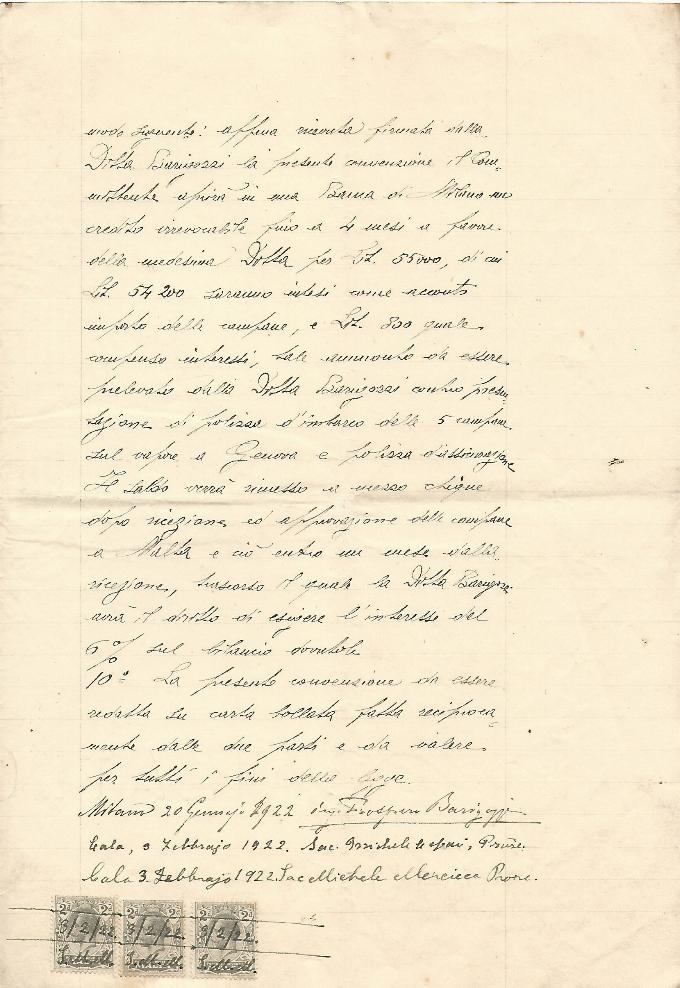 modo seguente: appena ricevuta firmata dalla
Ditta Barigozzi la presente convenzione il Com-
mittente aprirà in una Banca di Milano un
credito irrevocabile fino a 4 mesi a favore
della medesima Ditta per Lit. 55000, di cui
Lit. 54200 saranno intesi come acconto
importo delle campane, e Lit. 800 quale
compenso interessi, tale ammonto da essere
prelevato dalla Ditta Barigozzi contro presen-
tazione di polizza d'imbarco delle 5 campane
sul vapore a Genova e polizza d'assicurazione
Il saldo verrà rimesso a mezzo chèque
dopo ricezione ed approvazione delle campane
a Malta e ciò entro un mese dalla
ricezione, trascorso il quale la Ditta Barigozzi
avrà il diritto di esigere l'interesse del
6% sul bilancio dovutole
10° La presente convenzione da essere
redatta su carta bollata fatta reciproca-
mente dalle due parti e da valere
per tutti i fini della legge.
Milano 20 Gennajo 1922 Prospero Barigozzi
Cala, 3 Febbrajo 1922. Sac. Michele
Cala 3. Febbrajo 1922. Sac Michele Mercieca Procre.
2d 2d 2d 2d 2d 2d
3/2/22 3/2/22 3/2/22